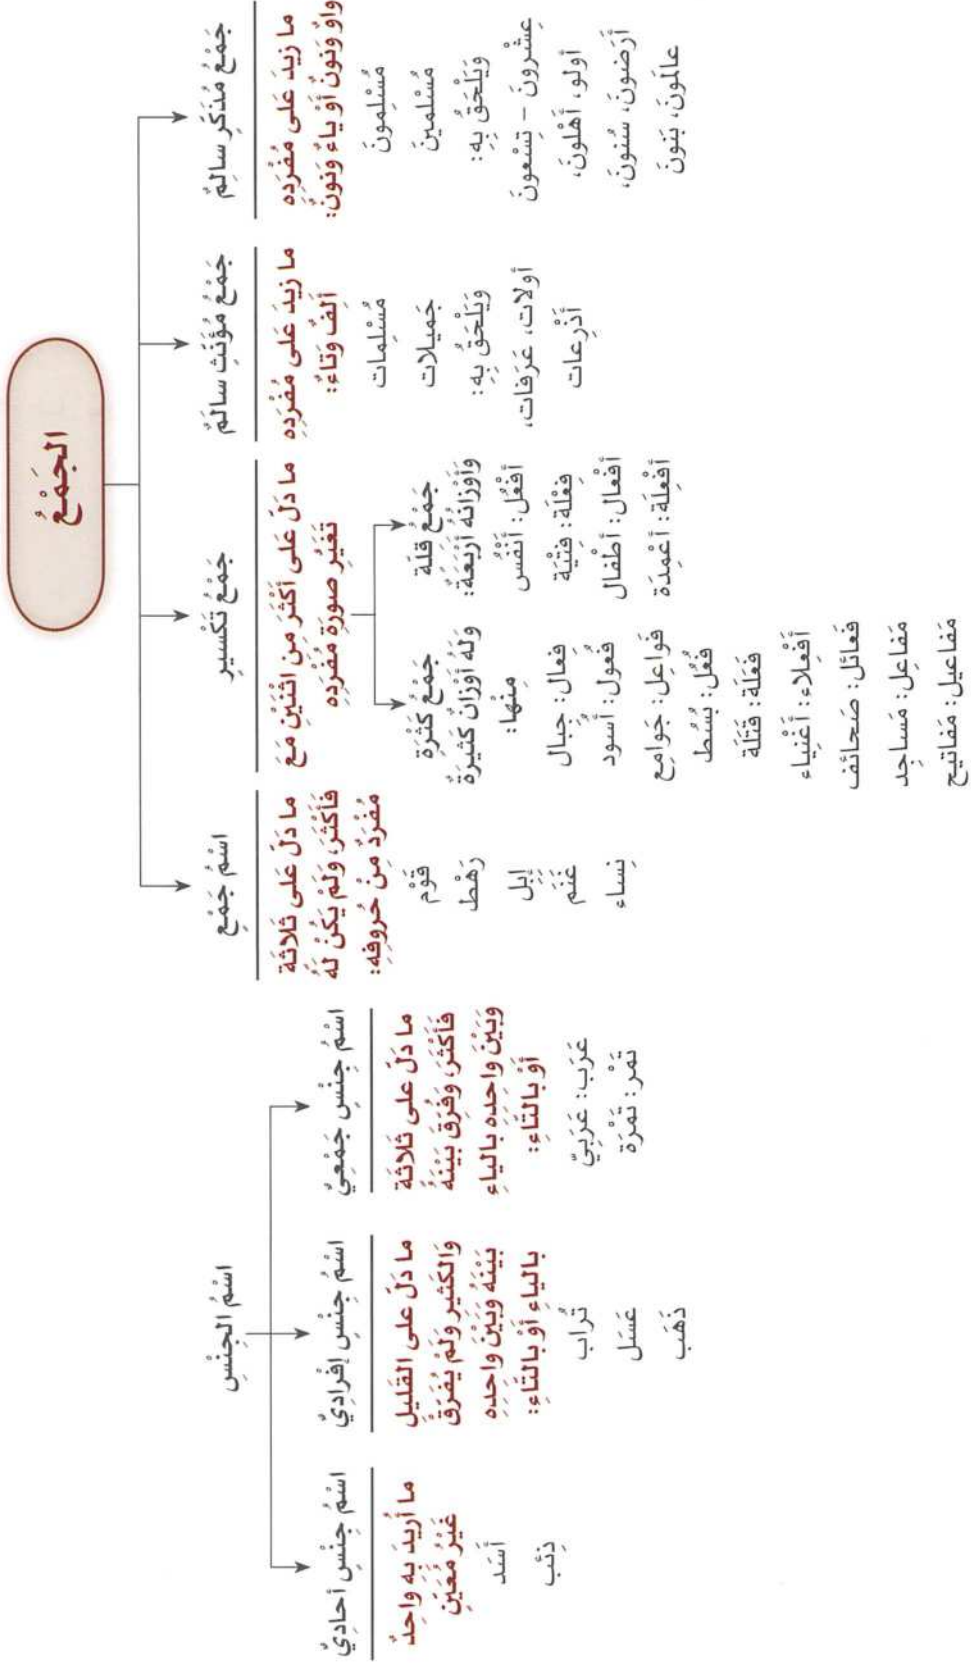 الجَمْعُ
جَمْعُ مُذَكَّرٍ سالِمٌ
ما زيدَ عَلى مُفْرَدِهِ
واوٌ وَنونٌ أَوْ ياءٌ وَنونٌ:
مُسْلِمونَ
مُسْلِمينَ
وَيَلْحَقُ بِهِ:
عِشْرونَ – تِسْعونَ
أولو، أَهْلونَ،
أَرَضونَ، سُنونَ،
عالَمونَ، بَنونَ
جَمْعُ مُؤَنَّثٍ سالِمٌ
ما زيدَ عَلى مُفْرَدِهِ
أَلِفٌ وَتاءٌ:
مُسْلِمات
جَميلات
وَيَلْحَقُ بِهِ:
أولات، عَرَفات،
أَذْرِعات
جَمْعُ تَكْسيرٍ
ما دَلَّ عَلى أَكْثَرَ مِن اثْنَيْنِ مَعَ
تَغَيُّرِ صورَةِ مُفْرَدِهِ
جَمْعُ قِلَّة
وَأَوْزانُهُ أَرْبَعَةٌ:
أَفْعُل: أَنْفُس
فِعْلَة: فِتْيَة
أَفْعال: أَطْفال
أَفْعِلَة: أَعْمِدَة
جَمْعُ كَثْرَةٍ
وَلَهُ أَوْزانٌ كَثيرَةٌ
مِنْها:
فِعال: جِبال
فُعول: أُسود
فَواعِل: جَوامِع
فُعُل: بُسُط
فَعَلَة: قَتَلَة
أَفْعِلاء: أَغْنِياء
فَعائل: صَحائف
مَفاعِل: مَساجِد
مَفاعيل: مَفاتيح
اسْمُ جَمْعٍ
ما دَلَّ عَلى ثَلاثَة
فَأَكْثَرَ، وَلَمْ يَكُنْ لَهُ
مُفْرَدٌ مِنْ حُروفِهِ:
قَوْم
رَهْط
إِبِل
غَنَم
نِساء
اسْمُ الجِنْسِ
اسْمُ جِنْسٍ جَمْعِيٌّ
ما دَلَّ عَلى ثَلاثَة
فَأَكْثَرَ، وَفُرِّقَ بَيْنَهُ
وَبَيْنَ واحِدِهِ بالياءِ
أَوْ بالتّاءِ:
عَرَب: عَرَبيّ
تَمْر: تَمْرَة
اسْمُ جِنْسٍ إِفْرادِيٌّ
ما دَلَّ عَلى القَليل
والكَثير وَلَمْ يُفَرَّقْ
بَيْنَهُ وَبَيْنَ واحِدِهِ
بالياءِ أَوْ بالتّاءِ:
تُراب
عَسَل
ذَهَب
اسْمُ جِنْسٍ أحادِيٌّ
ما أُريدَ بِهِ واحِدٌ
غَيْرُ مُعَيَّنٍ
أَسَد
ذِئْب